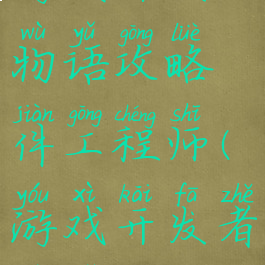 wù yǔ gōng lüè
物语攻略
jiàn gōng chéng shī
件工程师(
yóu xì kāi fā zhě
游戏开发者